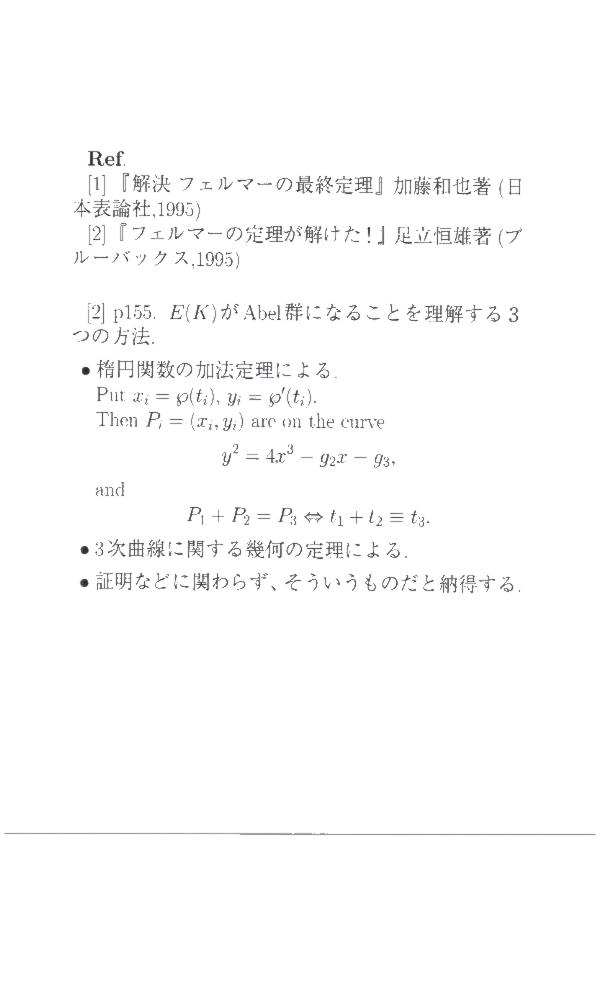 Ref.
[1] 『解決 フェルマーの最終定理』加藤和也著 (日
本表論社,1995)
[2] 『フェルマーの定理が解けた！』足立恒雄著 (ブ
ルーバックス,1995)
[2] p155. E(K)がAbel群になることを理解する3
つの方法.
• 楕円関数の加法定理による.
Put xᵢ = ℘(tᵢ), yᵢ = ℘′(tᵢ).
Then Pᵢ = (xᵢ, yᵢ) are on the curve
y² = 4x³ − g₂x − g₃,
and
P₁ + P₂ = P₃ ⇔ t₁ + t₂ ≡ t₃.
• 3次曲線に関する幾何の定理による.
• 証明などに関わらず、そういうものだと納得する.